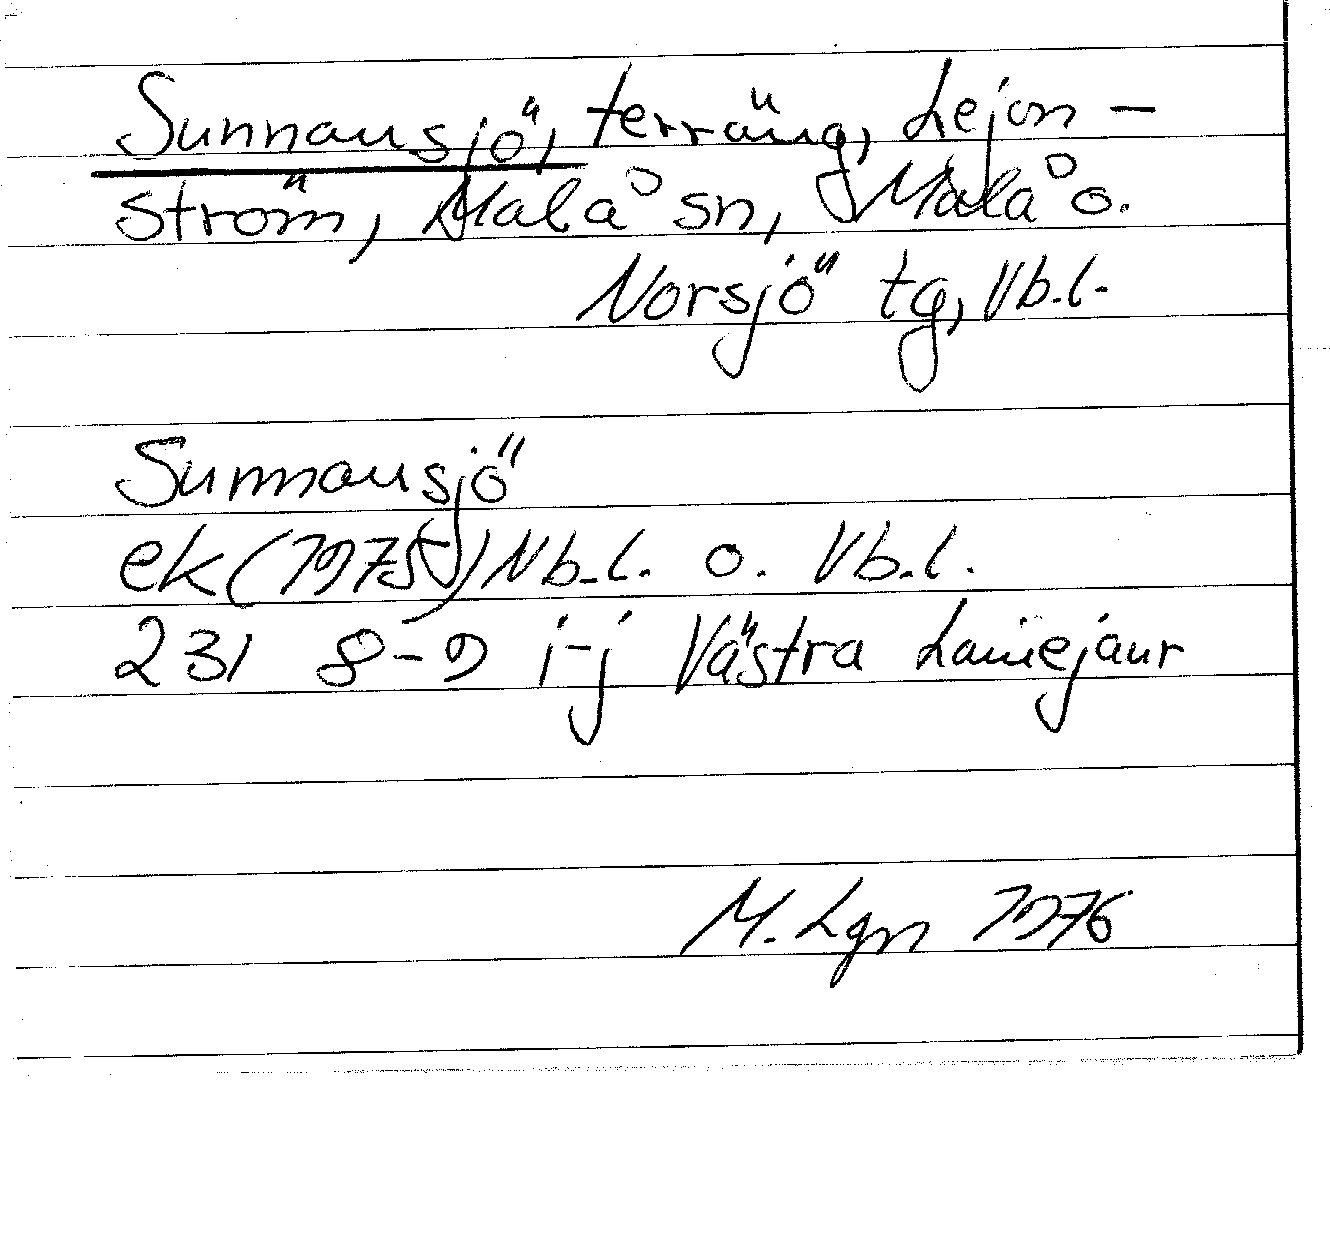 Sunnansjö, terräng, Lejon-
ström, Malå sn, Malå o.
Norsjö tg, Vb.l.
Sunnansjö
ek (1975) Nb.l. o. Vb.l.
23I 8-9 i-j Västra Lainejaur
M. Lgn 1976